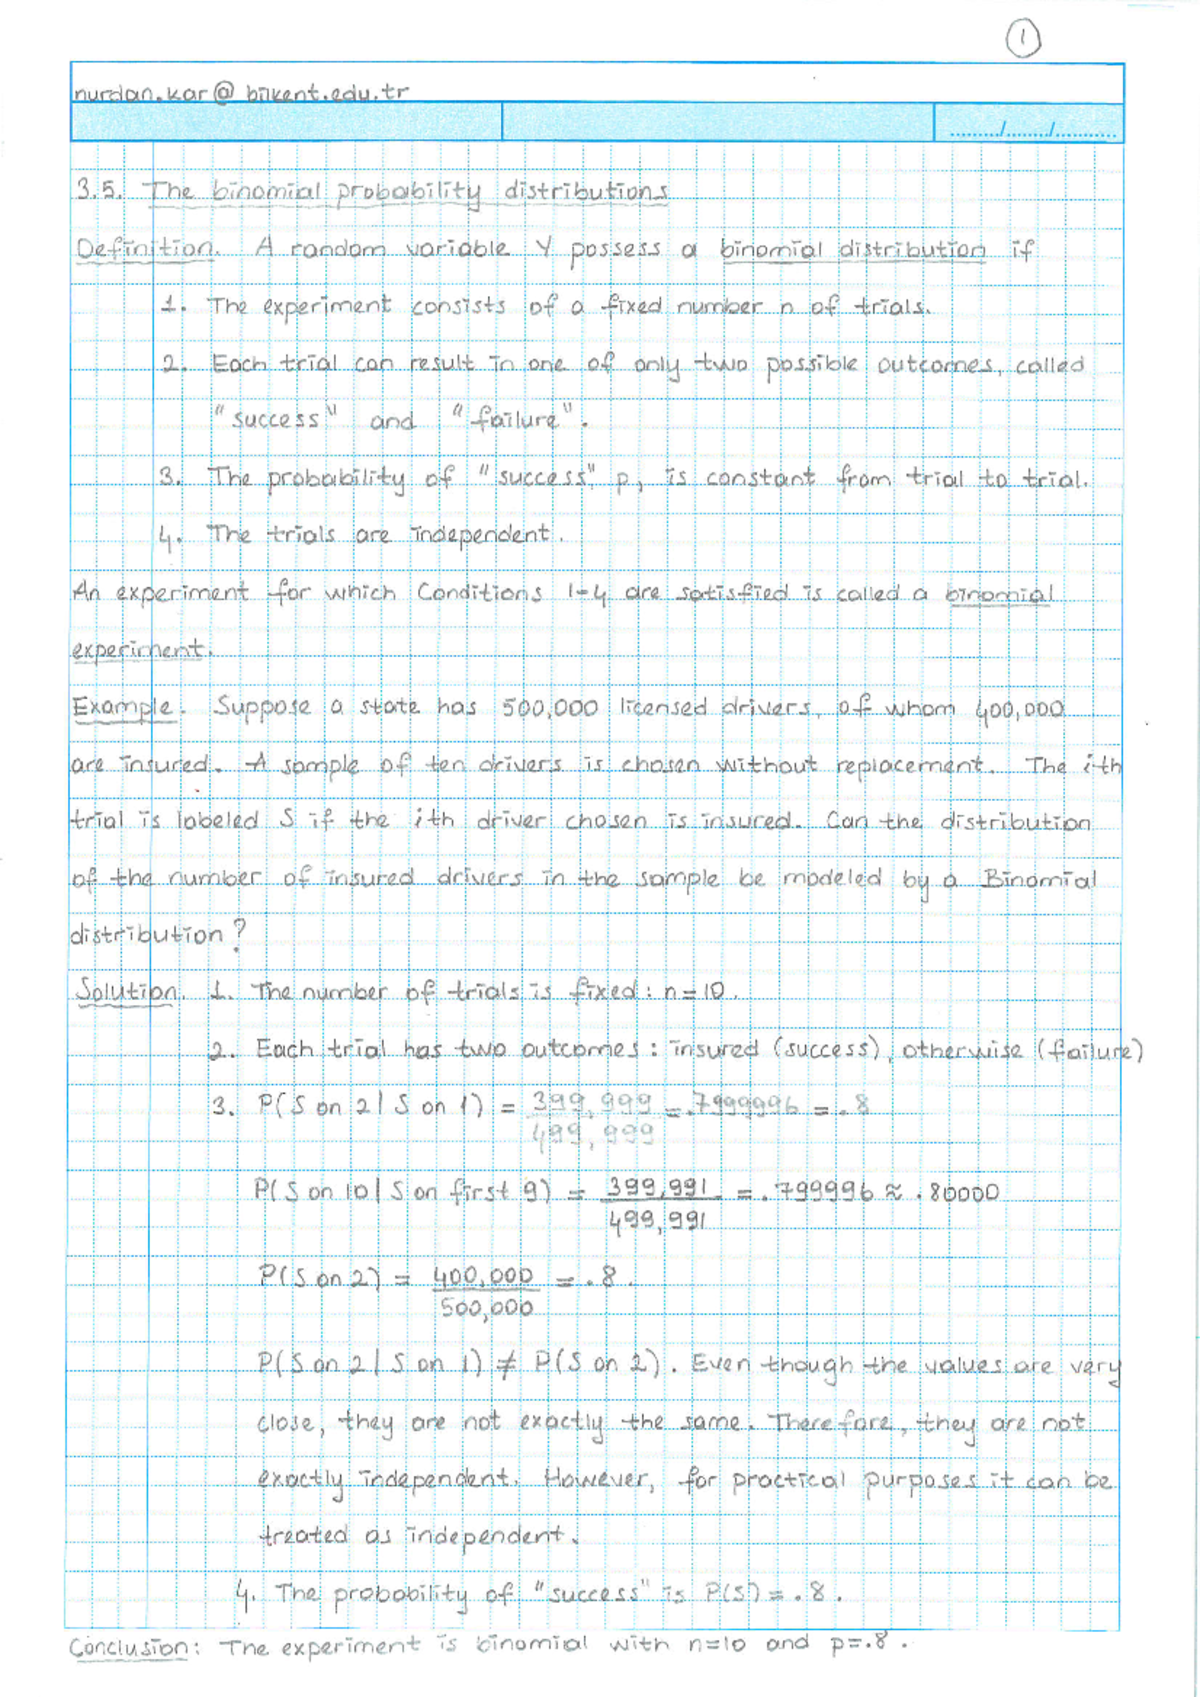 1
nurdan.kar@bilkent.edu.tr
3.5. The binomial probability distributions
Definition. A random variable Y possess a binomial distribution if
1. The experiment consists of a fixed number n of trials.
2. Each trial can result in one of only two possible outcomes, called
"success" and "failure".
3. The probability of "success" p, is constant from trial to trial.
4. The trials are independent.
An experiment for which Conditions 1-4 are satisfied is called a binomial
experiment.
Example. Suppose a state has 500,000 licensed drivers, of whom 400,000
are insured. A sample of ten drivers is chosen without replacement. The ith
trial is labeled S if the ith driver chosen is insured. Can the distribution
of the number of insured drivers in the sample be modeled by a Binomial
distribution?
Solution. 1. The number of trials is fixed: n=10.
2. Each trial has two outcomes: insured (success), otherwise (failure)
3. P(S on 2 | S on 1) = 399,999 / 499,999 = .7999996 = .8
P(S on 10 | S on first 9) = 399,991 / 499,991 = .799996 ≈ .80000
P(S on 2) = 400,000 / 500,000 = .8.
P(S on 2 | S on 1) ≠ P(S on 2). Even though the values are very
close, they are not exactly the same. Therefore, they are not
exactly independent. However, for practical purposes it can be
treated as independent.
4. The probability of "success" is P(S) = .8.
Conclusion: The experiment is binomial with n=10 and p=.8.